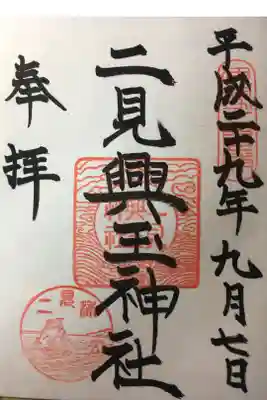 平成二十九年九月七日
二見興玉神社
奉拝
二見浦